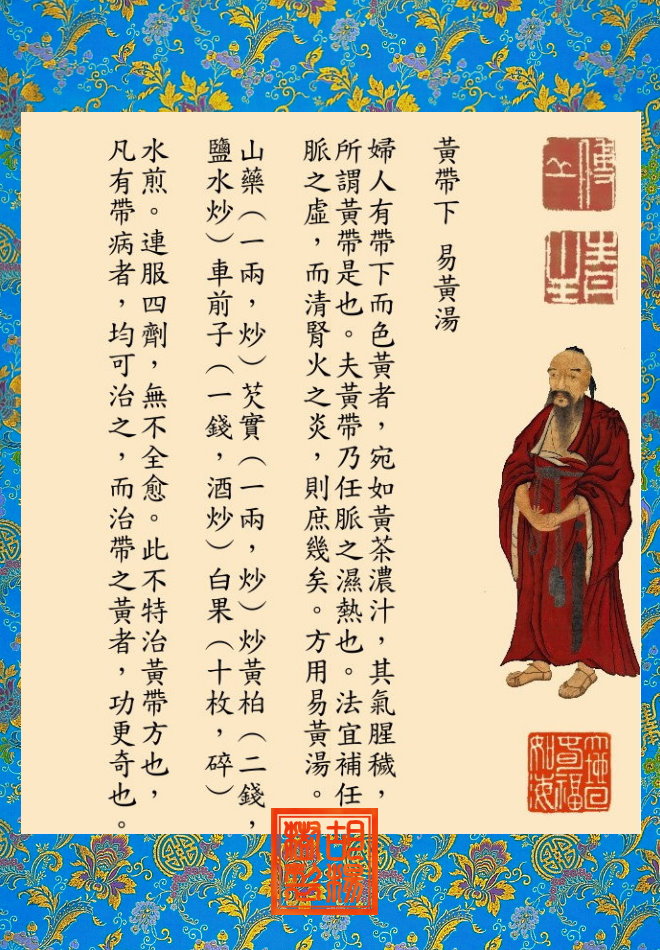 黃帶下　易黃湯
婦人有帶下而色黃者，宛如黃茶濃汁，其氣腥穢，
所謂黃帶是也。夫黃帶乃任脈之濕熱也。法宜補任
脈之虛，而清腎火之炎，則庶幾矣。方用易黃湯。
山藥（一兩，炒）芡實（一兩，炒）炒黃柏（二錢，
鹽水炒）車前子（一錢，酒炒）白果（十枚，碎）
水煎。連服四劑，無不全愈。此不特治黃帶方也，
凡有帶病者，均可治之，而治帶之黃者，功更奇也。